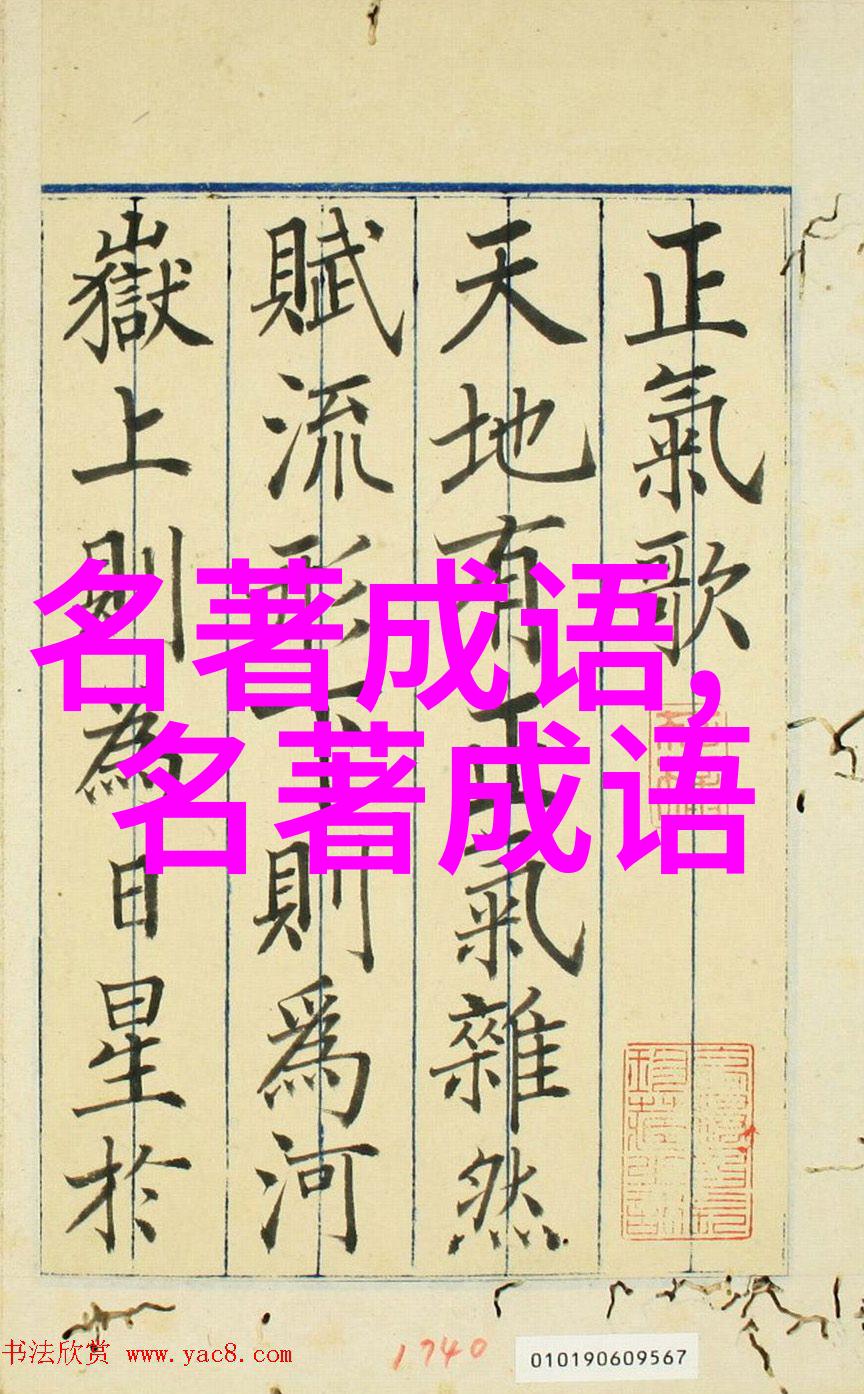 正氣歌
天地有正氣雜然
賦流形下則爲河
嶽上則為日星於
名著成语,
名著成语
书法欣赏 www.yac8.com
1740
010190609567